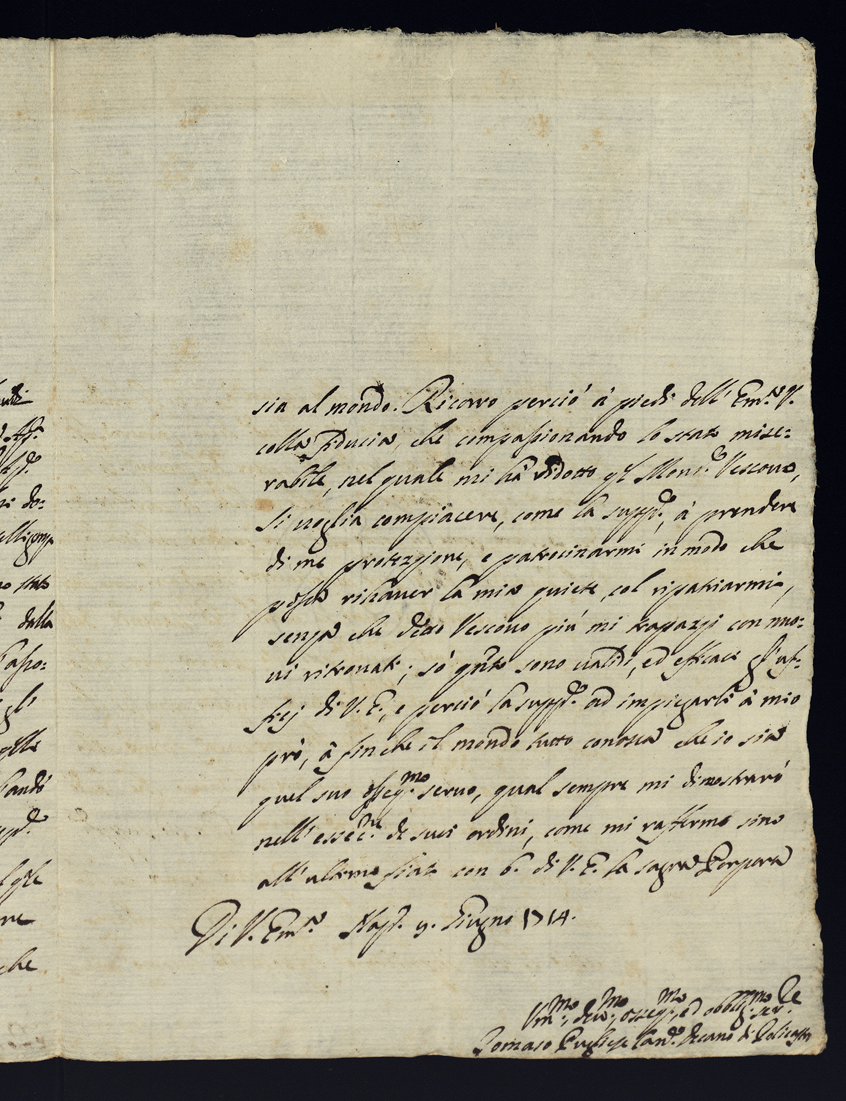 sia al mondo. Ricorro perciò à piedi dell' Em.ª V.
colla fiducia, che compassionando lo stato mise-
rabile, nel quale mi hà ridotto q.l Mons.r Vescovo,
si voglia compiacere, come la supp.co, à prendere
di me protezzione, e patrocinarmi in modo che
possa rihaver la mia quiete, col ripatriarmi,
senza che detto Vescovo più mi strapazzi con nuo-
vi ritrovati; sò q.nto sono validi, ed efficaci gl'uf-
ficj di V. E., e perciò la supp.co ad impiegarli à mio
prò, à fin che il mondo tutto conosca che io sia
quel suo osseq.mo servo, qual sempre mi dimostrarò
nell' essec.ne de suoi ordini, come mi raffermo sino
all' ultimo fiato con b. di V. E. la sagra Porpora
Di V. Em.ª Nap. 9. Giugno 1714.
Um.mo, dev.mo, osseq.mo, ed obblig.mo ser.re
Tomaso Pugliese Can.co Decano di Policastro